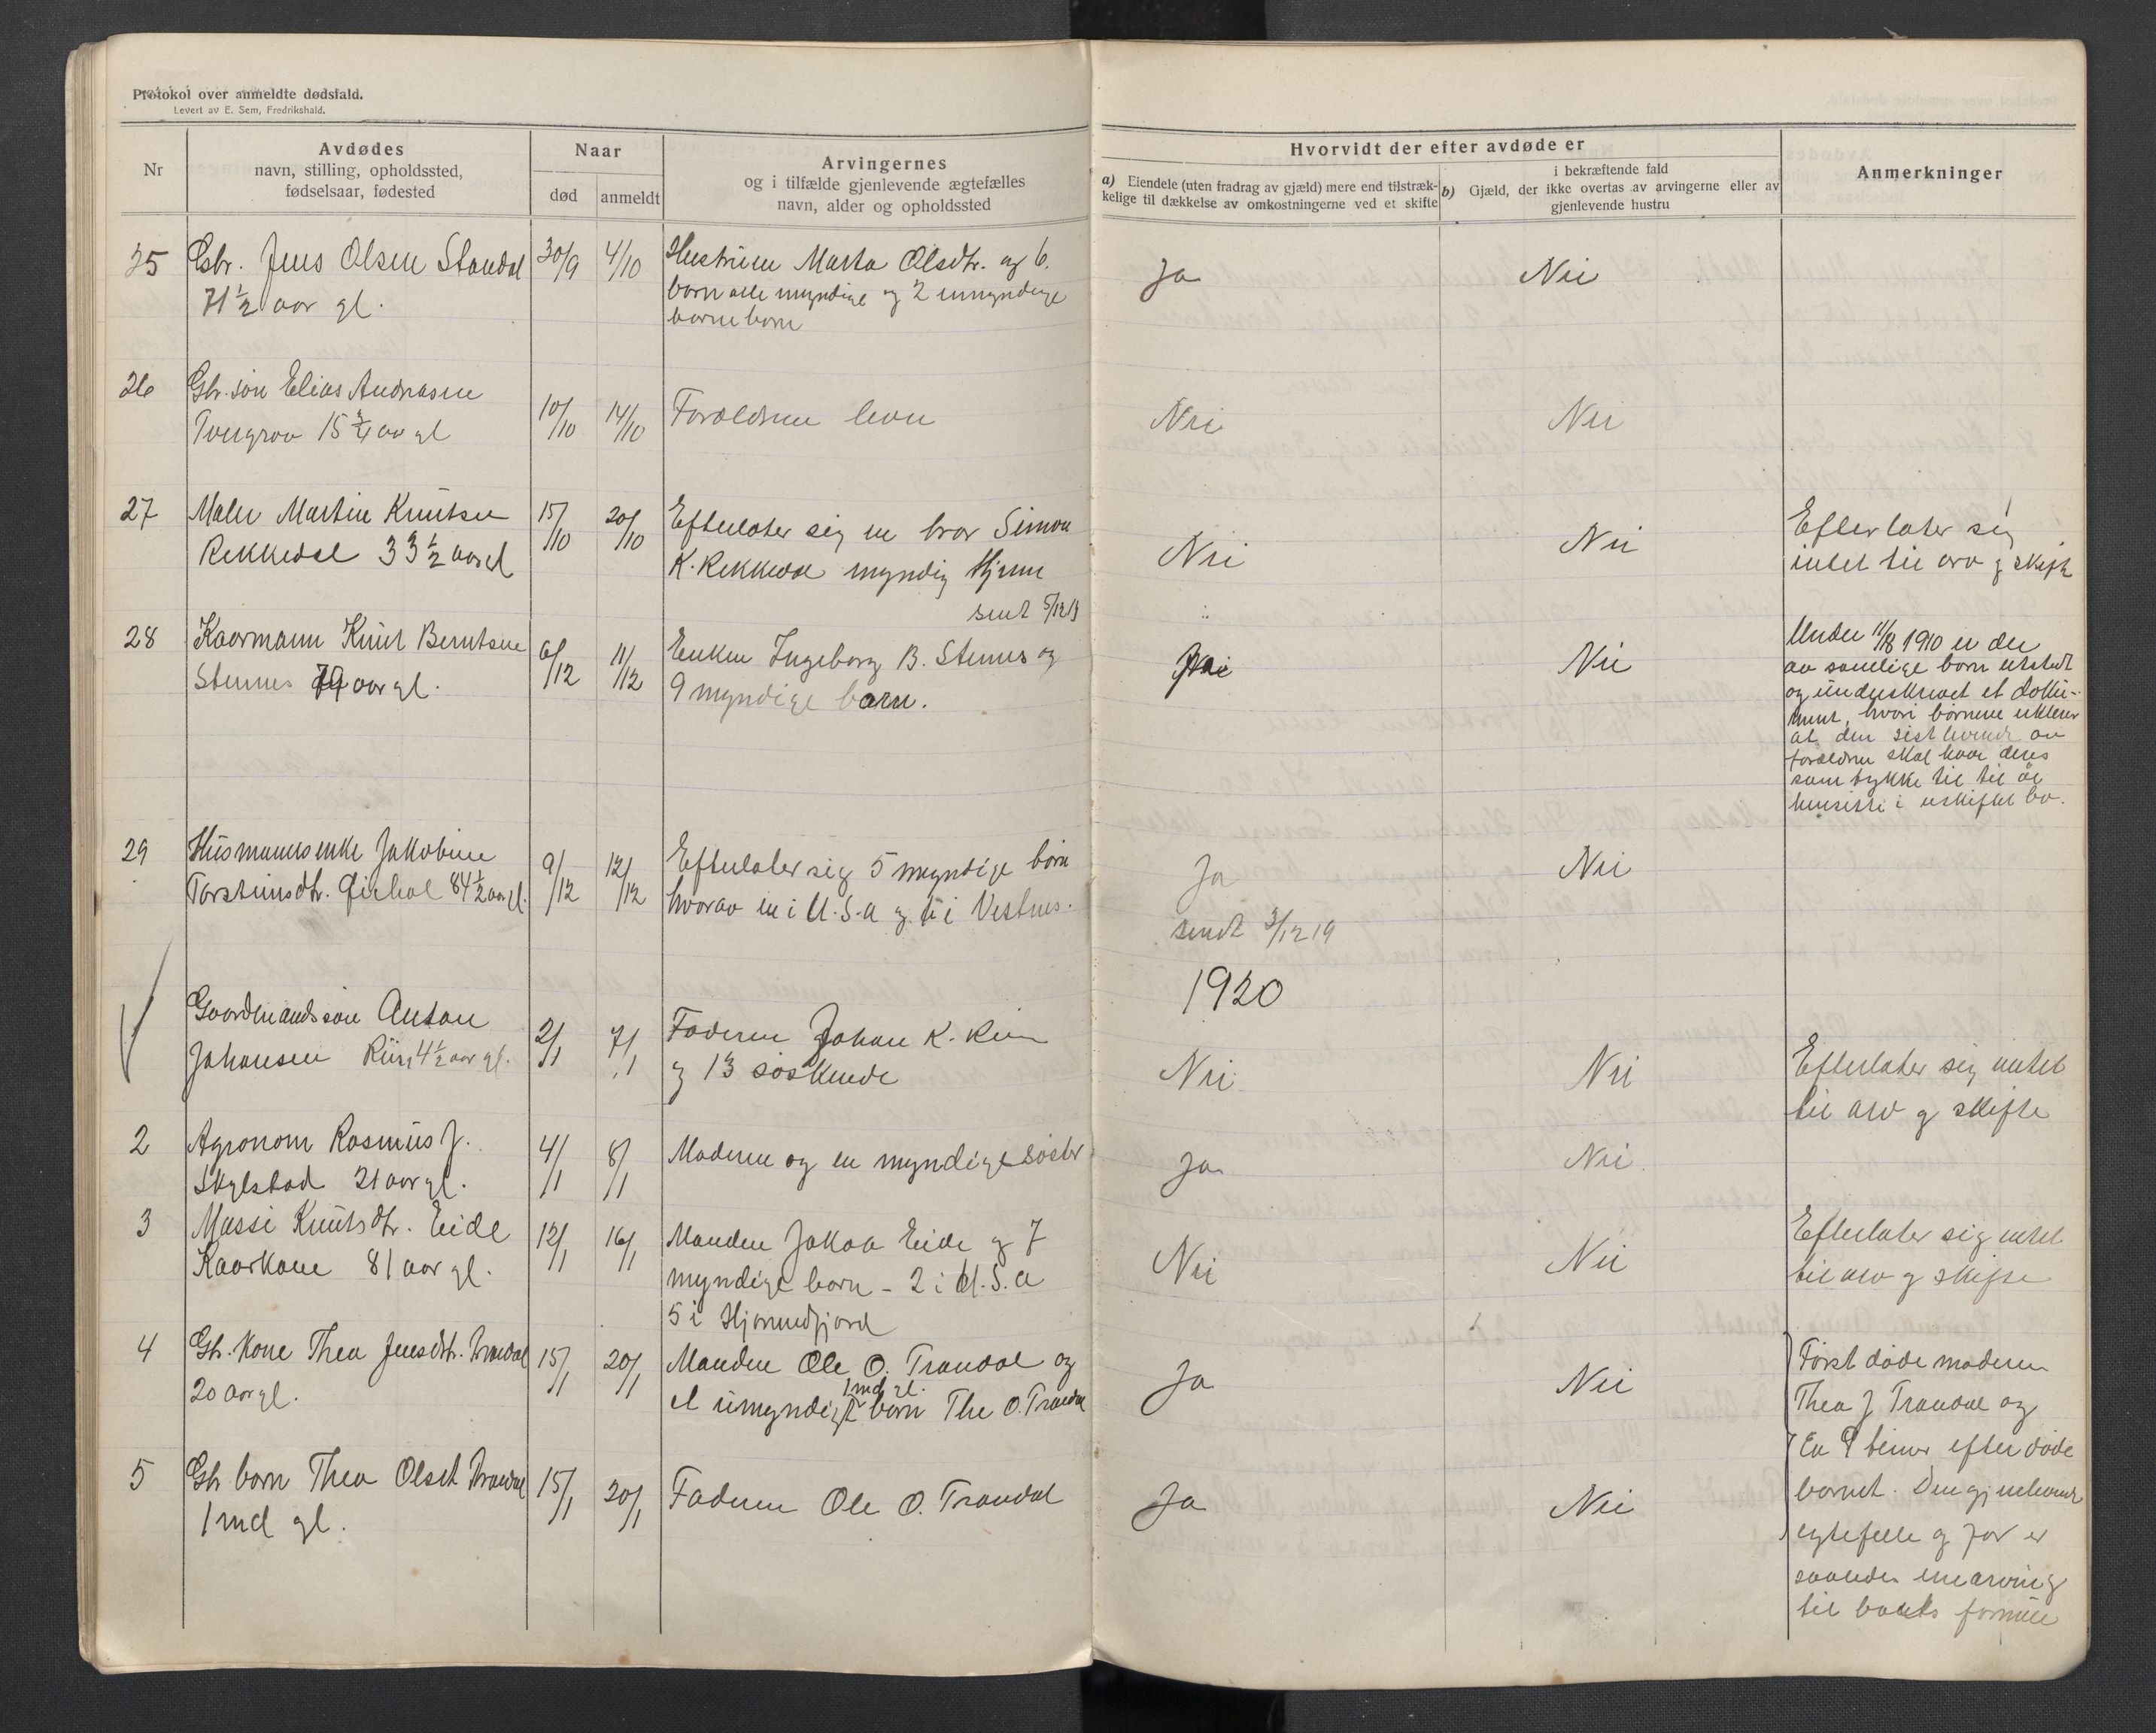 Protokol over anmeldte dødsfald.
Levert av E. Sem, Fredrikshald.
Nr
Avdødes
navn, stilling, opholdssted,
fødselsaar, fødested
Naar
død
anmeldt
Arvingernes
og i tilfælde gjenlevende ægtefælles
navn, alder og opholdssted
Hvorvidt der efter avdøde er
a) Eiendele (uten fradrag av gjæld) mere end tilstræk-
kelige til dækkelse av omkostningerne ved et skifte
i bekræftende fald
b) Gjæld, der ikke overtas av arvingerne eller av
gjenlevende hustru
Anmerkninger
25 Gbr. Jens Olsen Standal 30/9 4/10 Hustruen Marta Olsdtr. og 6. Ja Nei
71 1/2 aar gl. born alle myndige og 2 umyndige
borneborn
26 Gbr. søn Elias Andreasen 10/10 14/10 Foroldrene leve Nei Nei
15 3/4 aar gl
27 Maler Martin Knutsen 15/10 20/10 Efterlater sig en bror Simon Nei Nei Efterlater sig
Rekkedal 33 1/2 aar gl K. Rekkedal myndig Hjem intet til arv og skifte
sent 5/12 19
28 Kaarmann Knut Berntsen 6/12 11/12 Enken Ingeborg B. Stennes og Nei Under 11/8 1910 er der
Stennes 79 aar gl. 9 myndige born. av samlige born utstedt
og underskrevet et doku-
ment, hvori børnene erklerer
at den sist levende av
foroldrene skal have deres
samtykke til til at
hensitte i uskiftet bo.
29 Husmannsenke Jakobine 9/12 12/12 Efterlater sig 5 myndige børn Ja Nei
Torsteinsdtr. 84 1/2 aar gl. hvorav en i U.S.A og en i Vestnes.
sendt 3/12 19
1920
Gaardmandssøn Anton 2/1 7/1 Faderen Johan K. Nei Nei Efterlater sig intet
Johansen 4 1/2 aar gl. og 13 søskende til arv og skifte
2 Agronom Rasmus J. 4/1 8/1 Moderen og en myndige søster Ja Nei
Skylstad 21 aar gl.
3 Massi Knutsdtr. Eide 12/1 16/1 Manden Jakob Eide og 7 Nei Nei Efterlater sig intet
Kaarkone 81 aar gl. myndige born - 2 i U.S.A til arv og skifte
5 i Hjørundfjord
4 Gb. Kone Thea Jensdtr. Trandal 15/1 20/1 Manden Ole O. Trandal og Ja Nei Først døde moderen
20 aar gl. et umyndigt 1 md gl. born The O. Trandal Thea J Trandal og
5 Gb born Thea Olsdt Trandal 15/1 20/1 Faderen Ole O. Trandal Ja Nei Ca 9 timer efter døde
1 md gl. bornet. Den gjenlevende
egtefelle og far er
saaledes enearving
til boets formue